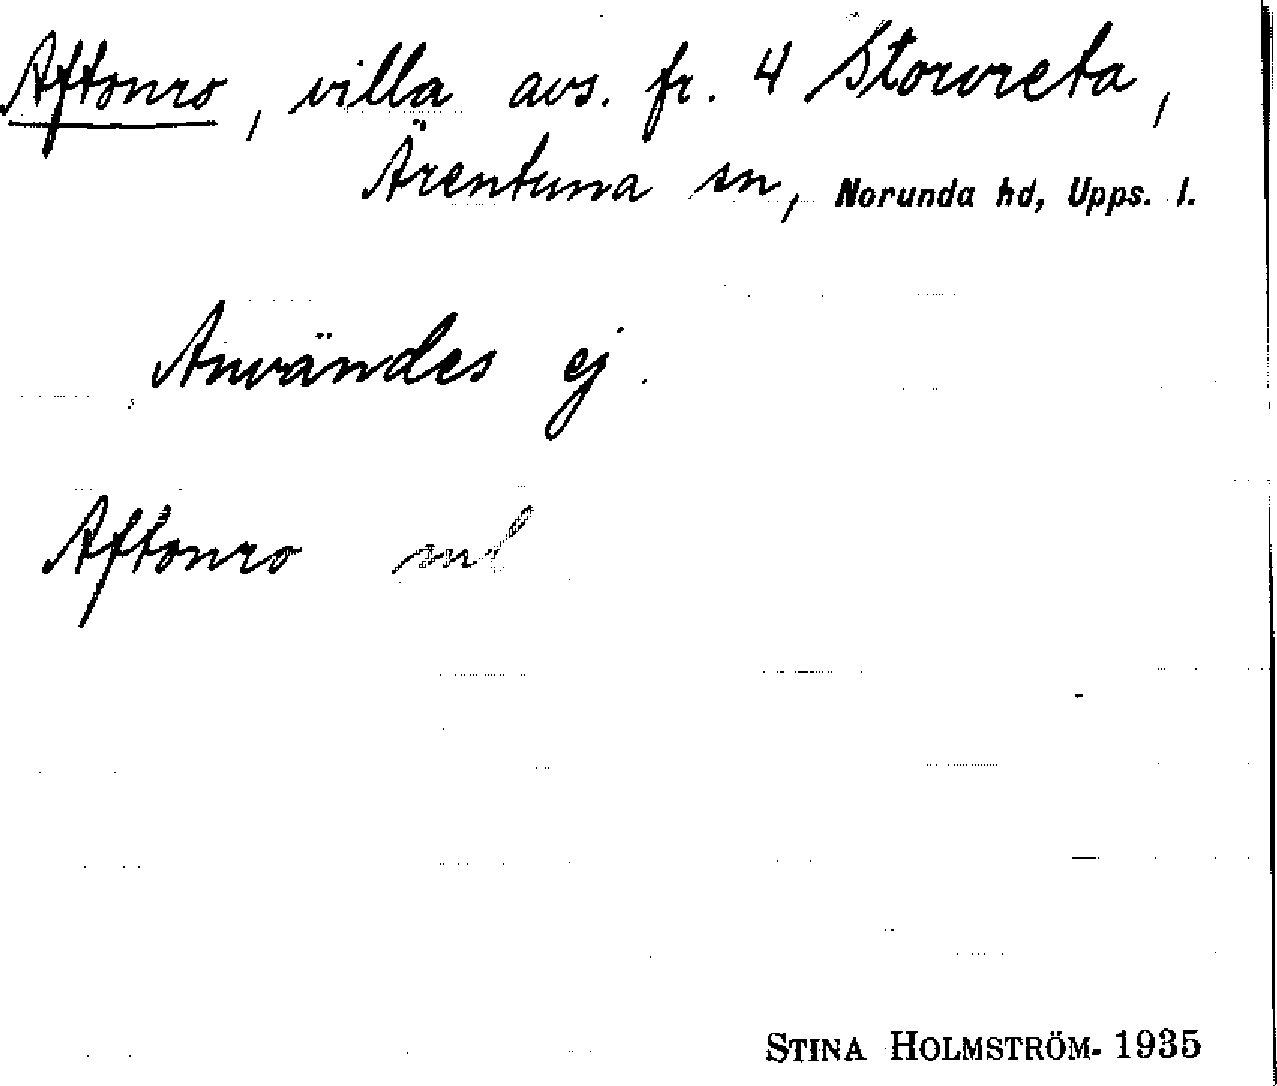 Aftonro, villa avs. fr. 4 Storvreta,
Ärentuna sn, Norunda hd, Upps. l.
Användes ej.
Aftonro
STINA HOLMSTRÖM. 1935